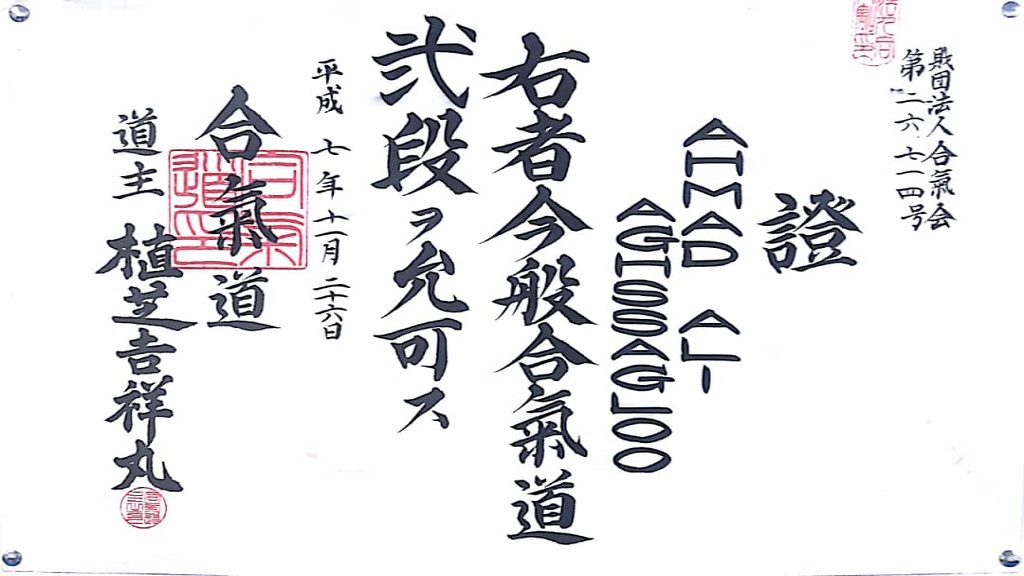 財団法人合氣会
第二六、七一四号
證
AHMAD ALI
AGHSSAGLOO
右者今般合氣道
弐段ヲ允可ス
平成七年十一月二十六日
合氣道
道主 植芝吉祥丸